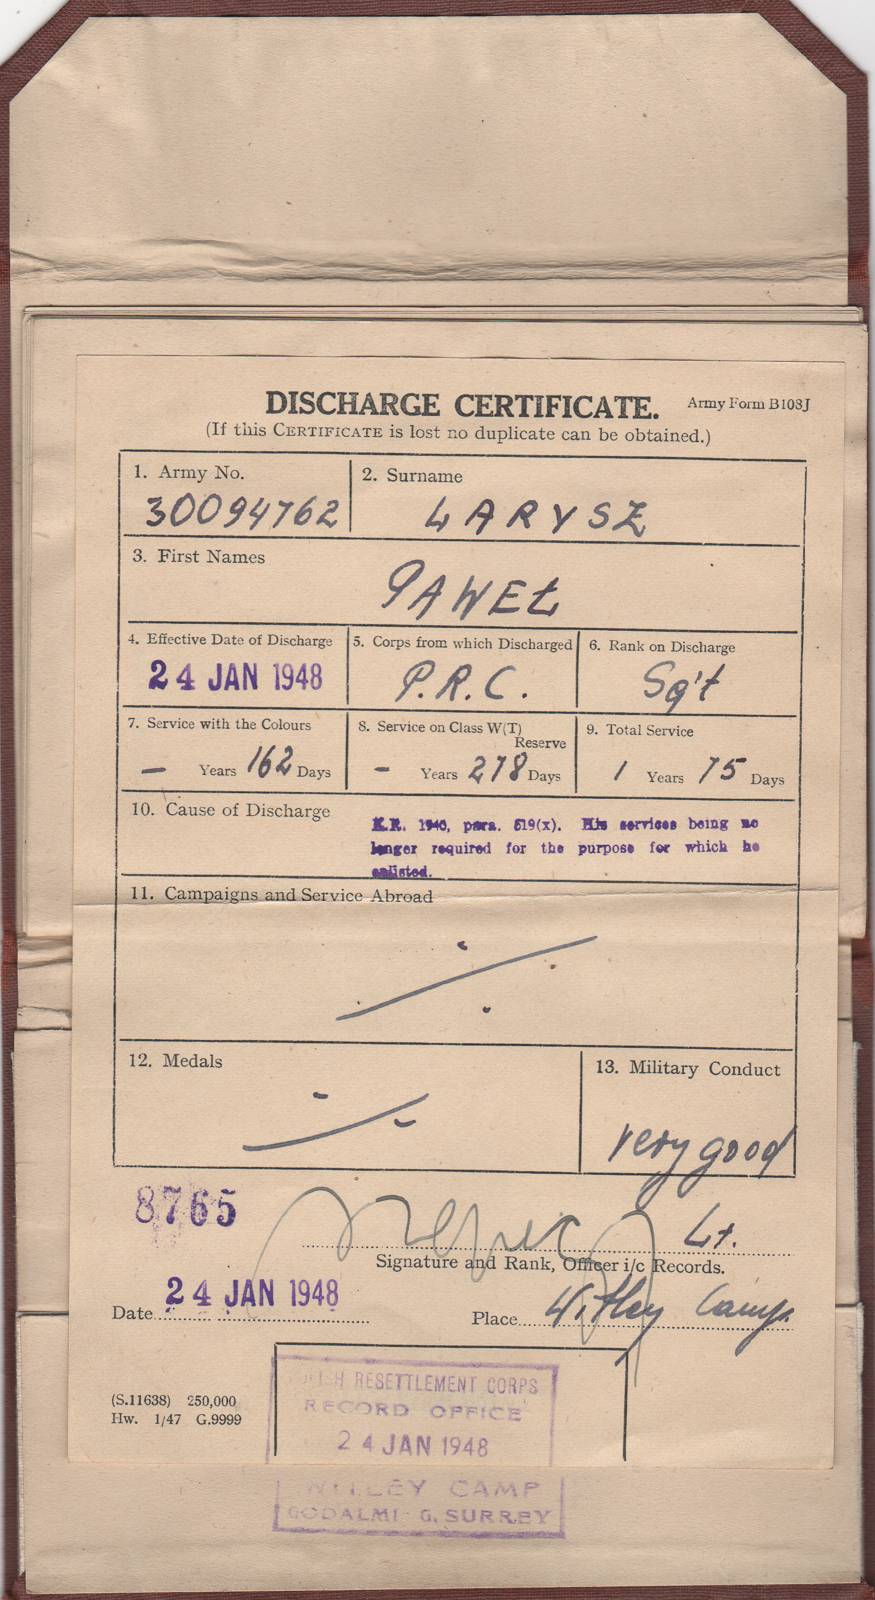 DISCHARGE CERTIFICATE. Army Form B108J
(If this CERTIFICATE is lost no duplicate can be obtained.)
1. Army No. 2. Surname
30094762 LARYSZ
3. First Names
PAWEŁ
4. Effective Date of Discharge 5. Corps from which Discharged 6. Rank on Discharge
24 JAN 1948 P.R.C. Sg't
7. Service with the Colours 8. Service on Class W(T) Reserve 9. Total Service
— Years 162 Days — Years 278 Days 1 Years 75 Days
10. Cause of Discharge
K.R. 1940, para. 519(x). His services being no
longer required for the purpose for which he
enlisted.
11. Campaigns and Service Abroad
12. Medals 13. Military Conduct
very good
8765
Lt.
Signature and Rank, Officer i/c Records.
Date 24 JAN 1948 Place Witley Camp
(S.11638) 250,000
Hw. 1/47 G.9999
RESETTLEMENT CORPS
RECORD OFFICE
24 JAN 1948
WITLEY CAMP
GODALMING. SURREY